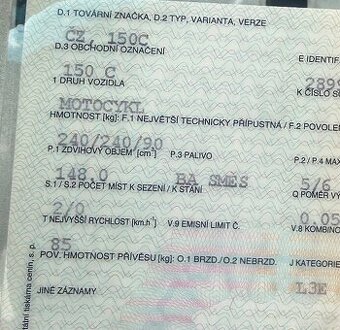 D.1 TOVÁRNÍ ZNAČKA, D.2 TYP, VARIANTA, VERZE
ČZ, 150C
D.3 OBCHODNÍ OZNAČENÍ E IDENTIF
150 C 2899
1 DRUH VOZIDLA K ČÍSLO S
MOTOCYKL
HMOTNOST [kg]: F.1 NEJVĚTŠÍ TECHNICKY PŘÍPUSTNÁ / F.2 POVOLE
240/240/90
P.1 ZDVIHOVÝ OBJEM [cm³] P.3 PALIVO P.2 / P.4 MAX
148.0 BA SMĚS 5/6
S.1 / S.2 POČET MÍST K SEZENÍ / K STÁNÍ Q POMĚR VÝ
2/0 0.05
T NEJVYŠŠÍ RYCHLOST [km.h⁻¹] V.9 EMISNÍ LIMIT Č. V.8 KOMBINO
85
POV. HMOTNOST PŘÍVĚSU [kg]: O.1 BRZD./O.2 NEBRZD. J KATEGORIE
L3E
JINÉ ZÁZNAMY
tiskárna cenin, s. p.